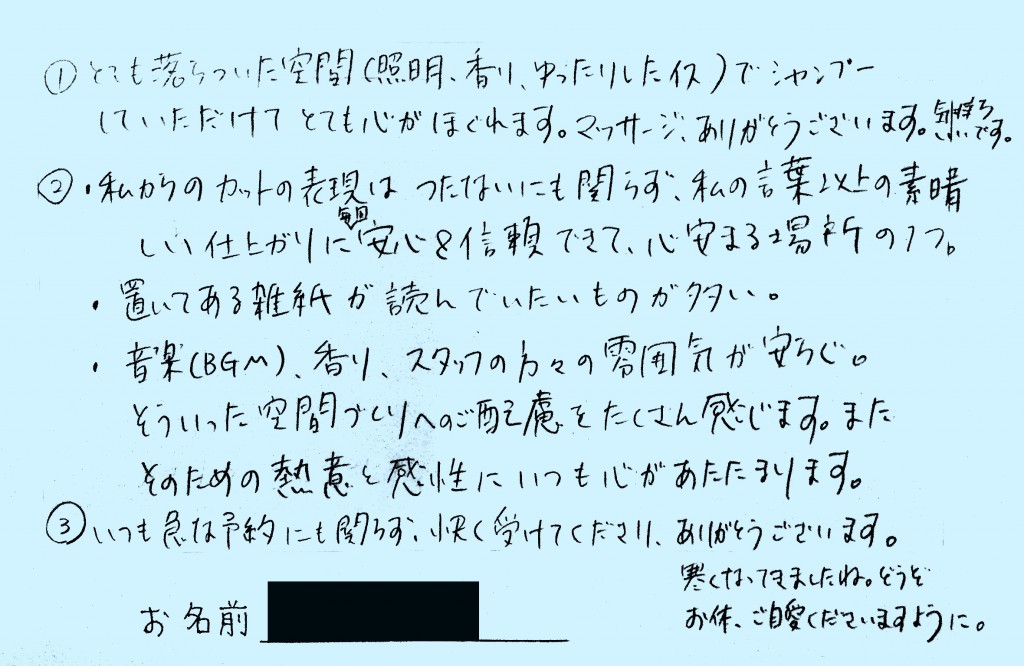 ① とても落ちついた空間(照明、香り、ゆったりしたイス)でシャンプー
していただけてとても心がほぐれます。マッサージ、ありがとうございます。気持ちいいです。
② ・私からのカットの表現はつたないにも関らず、私の言葉以上の素晴
しい仕上がりに毎回安心&信頼できて、心安まる場所の1つ。
・置いてある雑紙が読んでいたいものが多い。
・音楽(BGM)、香り、スタッフの方々の雰囲気が安らぐ。
そういった空間づくりへのご配慮をたくさん感じます。また
そのための熱意と感性にいつも心があたたまります。
③ いつも急な予約にも関らず、快く受けてくださり、ありがとうございます。
寒くなってきましたね。どうぞ
お体、ご自愛くださいますように。
お名前